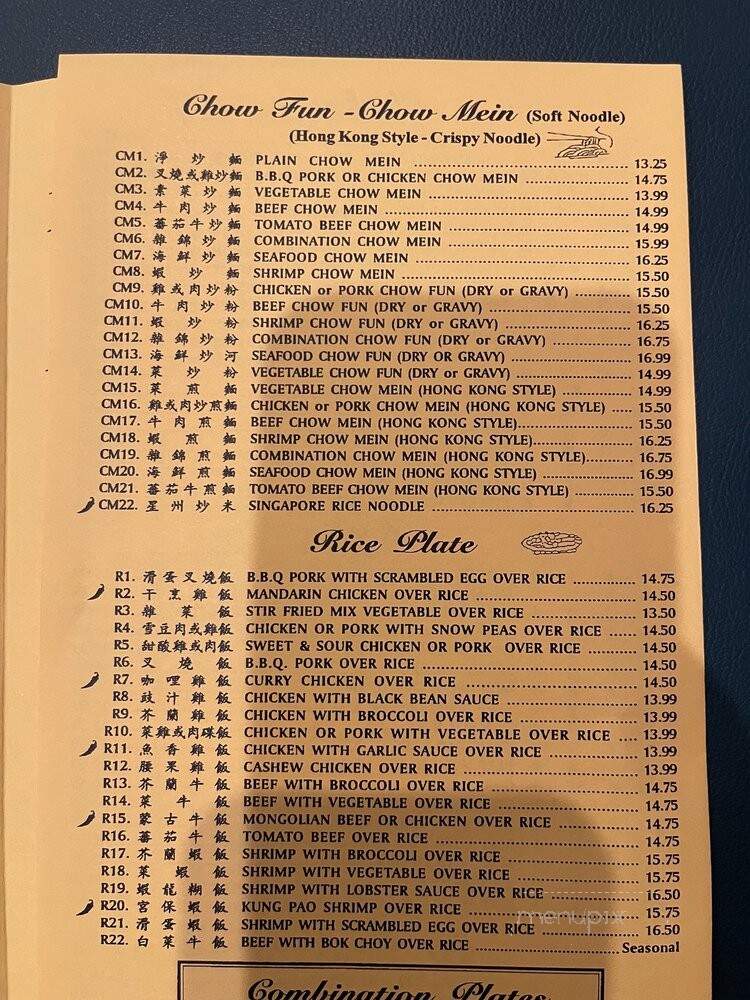 Chow Fun - Chow Mein (Soft Noodle)
(Hong Kong Style - Crispy Noodle)
CM1. 淨炒麵 PLAIN CHOW MEIN 13.25
CM2. 叉燒或雞炒麵 B.B.Q PORK OR CHICKEN CHOW MEIN 14.75
CM3. 素菜炒麵 VEGETABLE CHOW MEIN 13.99
CM4. 牛肉炒麵 BEEF CHOW MEIN 14.99
CM5. 蕃茄牛炒麵 TOMATO BEEF CHOW MEIN 14.99
CM6. 雜錦炒麵 COMBINATION CHOW MEIN 15.99
CM7. 海鮮炒麵 SEAFOOD CHOW MEIN 16.25
CM8. 蝦炒麵 SHRIMP CHOW MEIN 15.50
CM9. 雞或肉炒粉 CHICKEN or PORK CHOW FUN (DRY or GRAVY) 15.50
CM10. 牛肉炒粉 BEEF CHOW FUN (DRY or GRAVY) 15.50
CM11. 蝦炒粉 SHRIMP CHOW FUN (DRY or GRAVY) 16.25
CM12. 雜錦炒粉 COMBINATION CHOW FUN (DRY or GRAVY) 16.75
CM13. 海鮮炒河 SEAFOOD CHOW FUN (DRY OR GRAVY) 16.99
CM14. 菜炒粉 VEGETABLE CHOW FUN (DRY or GRAVY) 14.99
CM15. 菜煎麵 VEGETABLE CHOW MEIN (HONG KONG STYLE) 14.99
CM16. 雞或肉炒煎麵 CHICKEN or PORK CHOW MEIN (HONG KONG STYLE) 15.50
CM17. 牛肉煎麵 BEEF CHOW MEIN (HONG KONG STYLE) 15.50
CM18. 蝦煎麵 SHRIMP CHOW MEIN (HONG KONG STYLE) 16.25
CM19. 雜錦煎麵 COMBINATION CHOW MEIN (HONG KONG STYLE) 16.75
CM20. 海鮮煎麵 SEAFOOD CHOW MEIN (HONG KONG STYLE) 16.99
CM21. 蕃茄牛煎麵 TOMATO BEEF CHOW MEIN (HONG KONG STYLE) 15.50
CM22. 星州炒米 SINGAPORE RICE NOODLE 16.25
Rice Plate
R1. 滑蛋叉燒飯 B.B.Q PORK WITH SCRAMBLED EGG OVER RICE 14.75
R2. 干烹雞飯 MANDARIN CHICKEN OVER RICE 14.50
R3. 雜菜飯 STIR FRIED MIX VEGETABLE OVER RICE 13.50
R4. 雪豆肉或雞飯 CHICKEN OR PORK WITH SNOW PEAS OVER RICE 14.50
R5. 甜酸雞或肉飯 SWEET & SOUR CHICKEN OR PORK OVER RICE 14.50
R6. 叉燒飯 B.B.Q. PORK OVER RICE 14.50
R7. 咖哩雞飯 CURRY CHICKEN OVER RICE 14.50
R8. 豉汁雞飯 CHICKEN WITH BLACK BEAN SAUCE 13.99
R9. 芥蘭雞飯 CHICKEN WITH BROCCOLI OVER RICE 13.99
R10. 菜雞或肉碟飯 CHICKEN OR PORK WITH VEGETABLE OVER RICE 13.99
R11. 魚香雞飯 CHICKEN WITH GARLIC SAUCE OVER RICE 13.99
R12. 腰果雞飯 CASHEW CHICKEN OVER RICE 13.99
R13. 芥蘭牛飯 BEEF WITH BROCCOLI OVER RICE 14.75
R14. 菜牛飯 BEEF WITH VEGETABLE OVER RICE 14.75
R15. 蒙古牛飯 MONGOLIAN BEEF OR CHICKEN OVER RICE 14.75
R16. 蕃茄牛飯 TOMATO BEEF OVER RICE 14.75
R17. 芥蘭蝦飯 SHRIMP WITH BROCCOLI OVER RICE 15.75
R18. 菜蝦飯 SHRIMP WITH VEGETABLE OVER RICE 15.75
R19. 蝦龍糊飯 SHRIMP WITH LOBSTER SAUCE OVER RICE 16.50
R20. 宮保蝦飯 KUNG PAO SHRIMP OVER RICE 15.75
R21. 滑蛋蝦飯 SHRIMP WITH SCRAMBLED EGG OVER RICE 16.50
R22. 白菜牛飯 BEEF WITH BOK CHOY OVER RICE Seasonal
menupix
Combination Plates